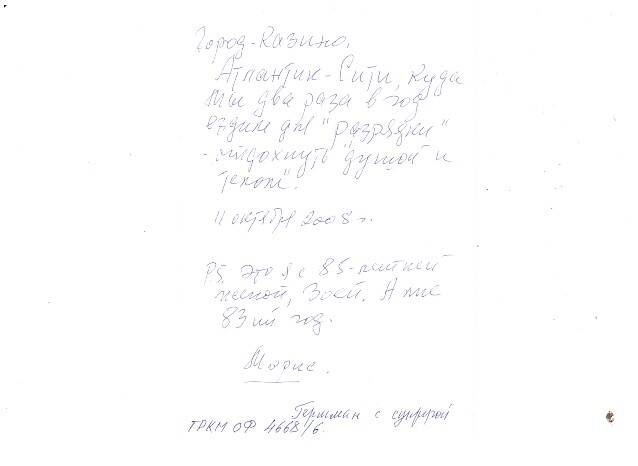 Город-Казино.
Атлантик-Сити, куда
мы два раза в год
ездим для "разрядки"
- отдохнуть "душой и
телом".
11 октября 2008 г.
PS. Это я с 85-летней
женой, Зоей. А мне
83ий год.
Морис.
Гершман с супругой
ТРКМ ОФ 4668/6.